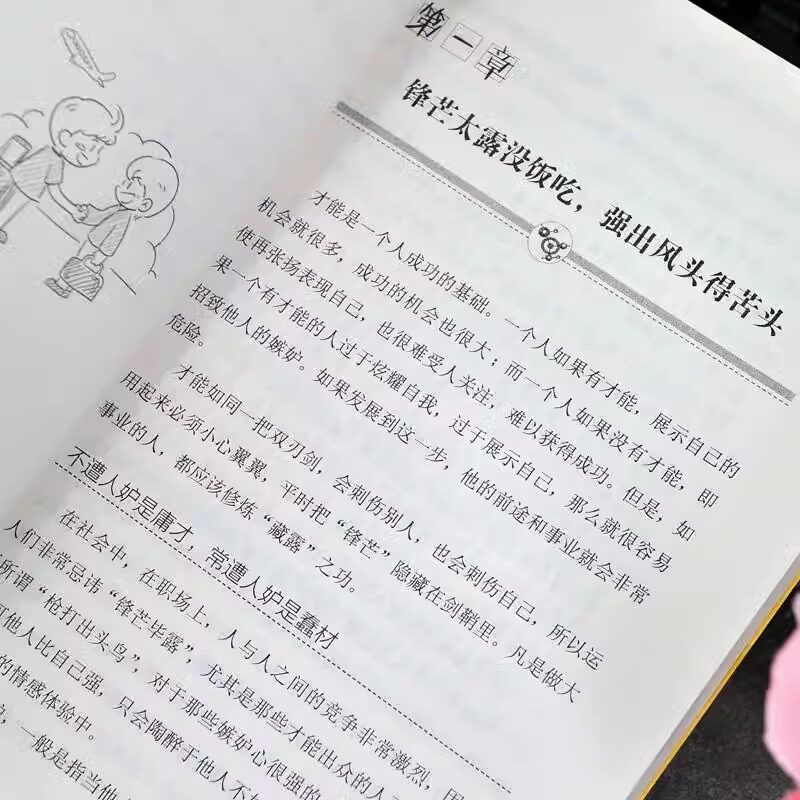 第一章
锋芒太露没饭吃,强出风头得苦头
才能是一个人成功的基础。一个人如果有才能,展示自己的
机会就很多,成功的机会也很大;而一个人如果没有才能,即
使再张扬表现自己,也很难受人关注,难以获得成功。但是,如
果一个有才能的人过于炫耀自我,过于展示自己,那么就很容易
招致他人的嫉妒。如果发展到这一步,他的前途和事业就会非常
危险。
才能如同一把双刃剑,会刺伤别人,也会刺伤自己,所以运
用起来必须小心翼翼,平时把“锋芒”隐藏在剑鞘里。凡是做大
事业的人,都应该修炼“藏露”之功。
不遭人妒是庸才,常遭人妒是蠢材
在社会中,在职场上,人与人之间的竞争非常激烈,因
人们非常忌讳“锋芒毕露”,尤其是那些才能出众的人
所谓“枪打出头鸟”,对于那些嫉妒心很强的
他人比自己强,只会陶醉于他人不
的情感体验中。
一般是指当他